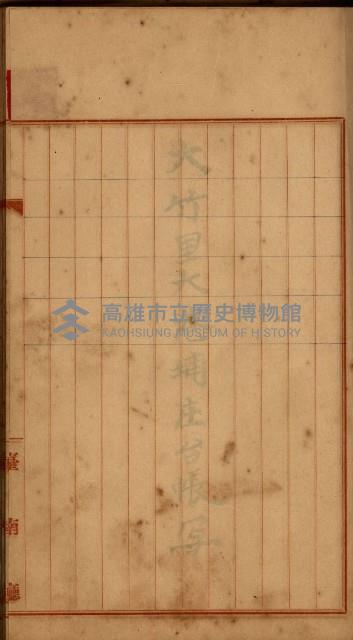 大竹里大港埔庄台帳写
高雄市立歷史博物館
KAOHSIUNG MUSEUM OF HISTORY
臺南廳